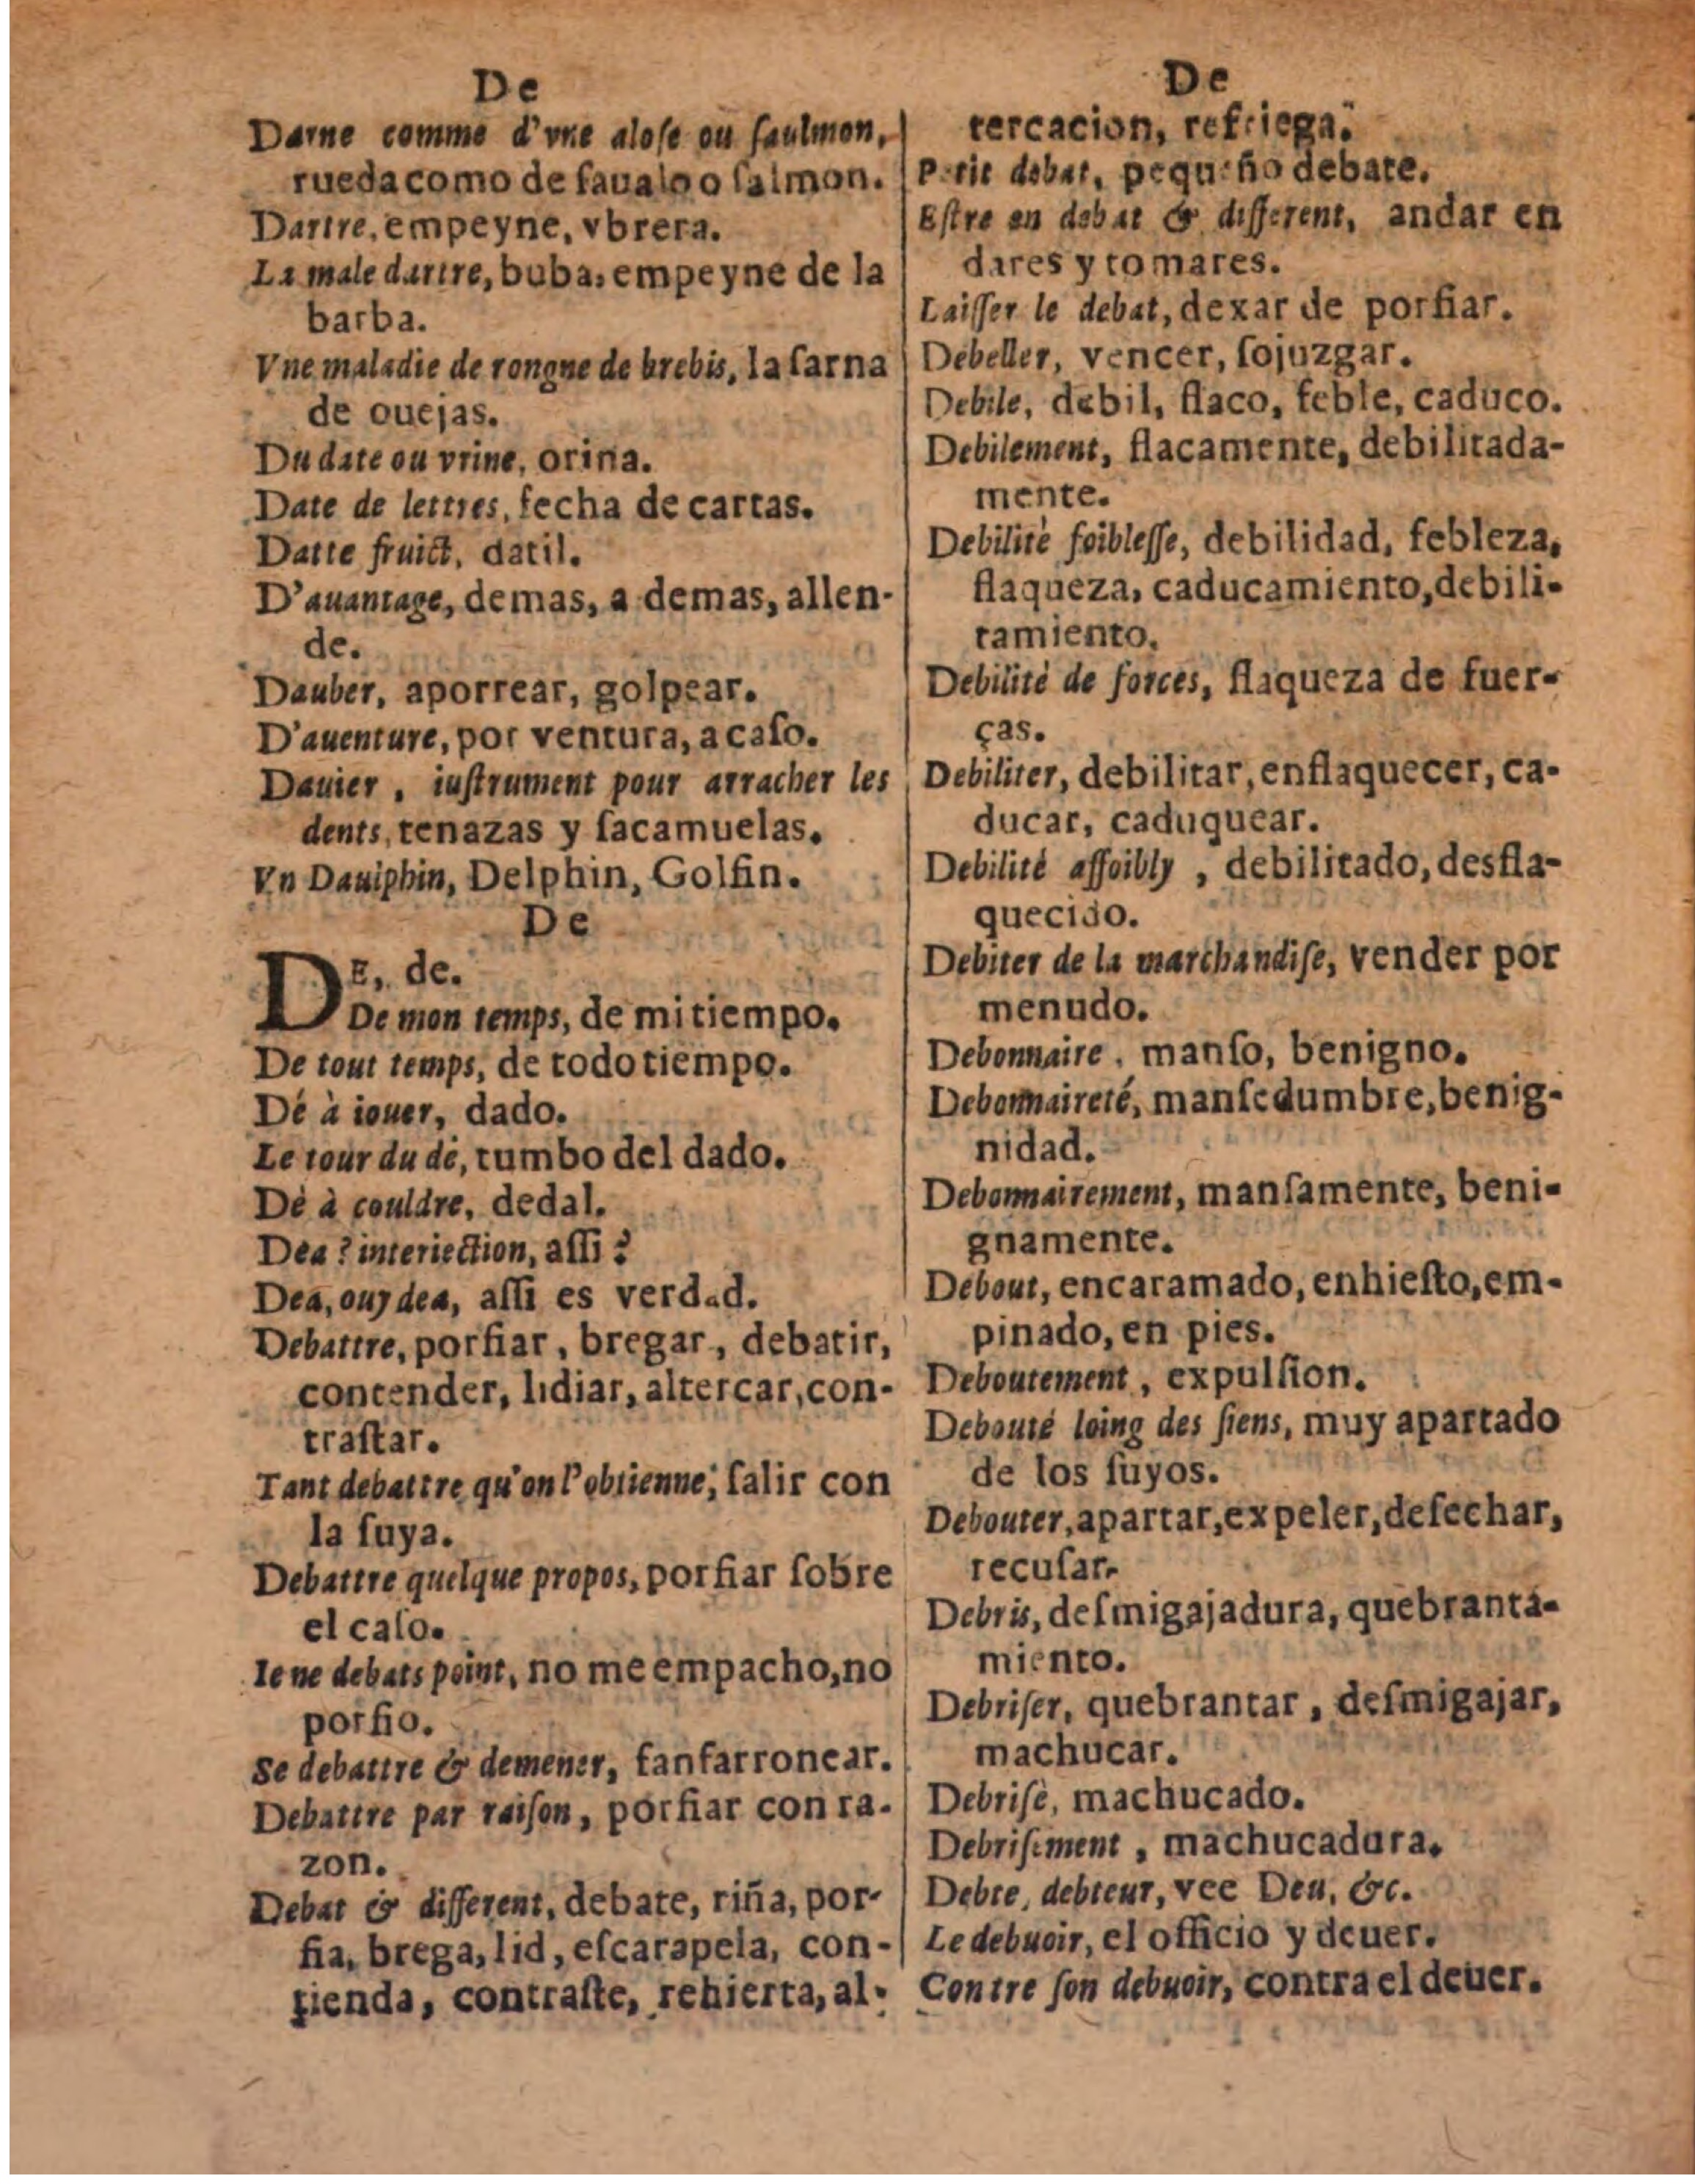 De
Darne comme d'vne aloſe ou ſaulmon,
rueda como de ſaualo o ſalmon.
Dartre, empeyne, vbrera.
La male dartre, buba, empeyne de la
barba.
Vne maladie de rongne de brebis, la ſarna
de ouejas.
Du date ou vrine, orina.
Date de lettres, fecha de cartas.
Datte fruict, datil.
D'auantage, demas, a demas, allen-
de.
Dauber, aporrear, golpear.
D'auenture, por ventura, a caſo.
Dauier, iuſtrument pour arracher les
dents, tenazas y ſacamuelas.
Vn Dauiphin, Delphin, Golfin.
De
DE, de.
De mon temps, de mi tiempo.
De tout temps, de todo tiempo.
Dé à iouer, dado.
Le tour du dé, tumbo del dado.
Dè à couldre, dedal.
Dea ? interiection, aſſi ?
Dea, ouy dea, aſſi es verdad.
Debattre, porfiar, bregar, debatir,
contender, lidiar, altercar, con-
traſtar.
Tant debattre qu'on l'obtienne, ſalir con
la ſuya.
Debattre quelque propos, porfiar ſobre
el caſo.
Ie ne debats point, no me empacho, no
porfio.
Se debattre & demener, fanfarronear.
Debattre par raiſon, porfiar con ra-
zon.
Debat & different, debate, riña, por-
fia, brega, lid, eſcarapela, con-
tienda, contraſte, rehierta, al-
De
tercacion, refriega.
Petit debat, pequeño debate.
Eſtre en debat & different, andar en
dares y tomares.
Laiſſer le debat, dexar de porfiar.
Debeller, vencer, ſojuzgar.
Debile, debil, flaco, feble, caduco.
Debilement, flacamente, debilitada-
mente.
Debilitè foibleſſe, debilidad, febleza,
flaqueza, caducamiento, debili-
tamiento.
Debilité de forces, flaqueza de fuer-
ças.
Debiliter, debilitar, enflaquecer, ca-
ducar, caduquear.
Debilité affoibly, debilitado, desfla-
quecido.
Debiter de la marchandiſe, vender por
menudo.
Debonnaire, manſo, benigno.
Debonnaireté, manſedumbre, benig-
nidad.
Debonnairement, manſamente, beni-
gnamente.
Debout, encaramado, enhieſto, em-
pinado, en pies.
Deboutement, expulſion.
Debouté loing des ſiens, muy apartado
de los ſuyos.
Debouter, apartar, expeler, deſechar,
recuſar.
Debris, deſmigajadura, quebranta-
miento.
Debriſer, quebrantar, deſmigajar,
machucar.
Debriſè, machucado.
Debriſement, machucadura.
Debte, debteur, vee Deu, &c.
Le debuoir, el officio y deuer.
Contre ſon debuoir, contra el deuer.